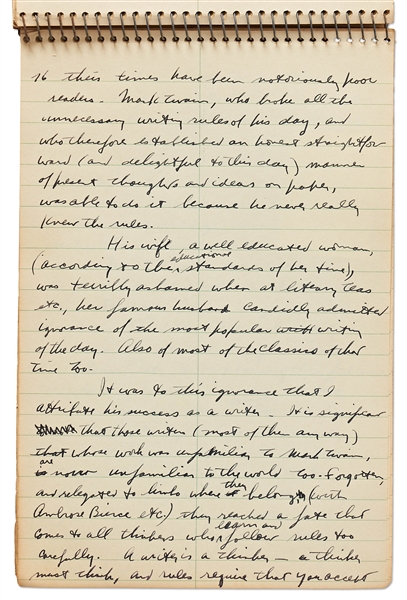 16 their times have been notoriously poor
readers. Mark Twain, who broke all the
unnecessary writing rules of his day, and
who therefore established an honest straightfor
ward (and delightful to this day) manner
of present thoughts and ideas on paper,
was able to do it because he never really
knew the rules.
His wife, a well educated woman,
(according to the educational standards of her time),
was terribly ashamed when at literary teas
etc., her famous husband candidly admitted
ignorance of the most popular writing
of the day. Also of most of the classics of that
time too.
It was to this ignorance that I
attribute his success as a writer. It is significan
that those writers (most of them any way)
that whose work was unfamiliar to Mark Twain,
are now unfamiliar to the world too. Forgotten,
and relegated to limbo where they belong, (with
Ambrose Bierce etc.) they reached a fate that
comes to all thinkers who learn and follow rules too
carefully. A writer is a thinker – a thinker
must think, and rules require that you accept